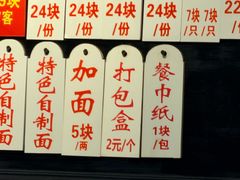 5块
/客
24块
/份
24块
/份
24块
/份
24块
/份
7块
/只
7块
/只
22
/份
特色自制面
特色自制面
加面
5块
/两
打包盒
2元/个
餐巾纸
1块
/包